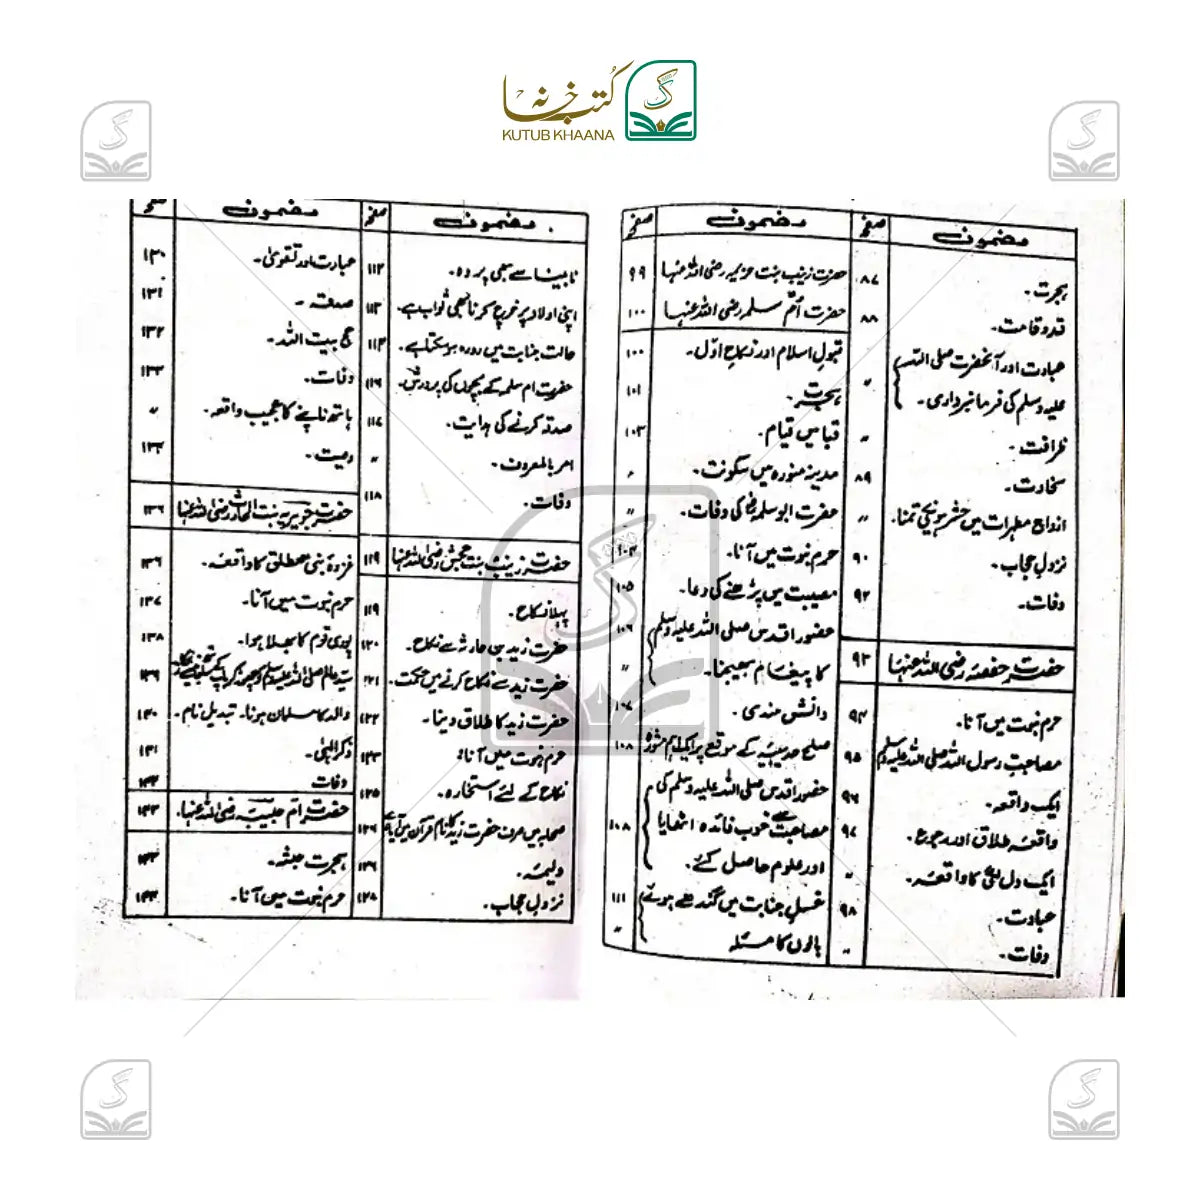 کتب خانہ
KUTUB KHAANA
مضمون صفحہ
ہجرت۔ ۸۷
قد و قامت۔ ۸۸
عبادت اور آنحضرت صلی اللہ
علیہ وسلم کی فرمانبرداری۔ "
ظرافت۔ "
سخاوت۔ ۸۹
ازواج مطہرات میں حشر ہونیکی تمنا۔ "
نزول حجاب۔ ۹۰
وفات۔ ۹۲
حضرت حفصہ رضی اللہ عنہا ۹۳
حرم نبوت میں آنا۔ ۹۴
مصاحبت رسول اللہ صلی اللہ علیہ وسلم ۹۵
ایک واقعہ۔ ۹۶
واقعہ طلاق اور رجوع۔ ۹۷
ایک دل لگی کا واقعہ۔ "
عبادت۔ ۹۸
وفات۔ "
مضمون صفحہ
حضرت زینب بنت خزیمہ رضی اللہ عنہا ۹۹
حضرت اُمّ سلمہ رضی اللہ عنہا ۱۰۰
قبول اسلام اور نکاح اوّل۔ ۱۰۰
ہجرت۔ ۱۰۱
قبا میں قیام۔ ۱۰۳
مدینہ منورہ میں سکونت۔ "
حضرت ابوسلمہؓ کی وفات۔ "
حرم نبوت میں آنا۔ ۱۰۴
مصیبت میں پڑھنے کی دعا۔ ۱۰۵
حضور اقدس صلی اللہ علیہ وسلم ۱۰۶
کا پیغام بھیجنا۔ "
دانش مندی۔
صلح حدیبیہ کے موقع پر ایک اہم مشورہ ۱۰۸
حضور اقدس صلی اللہ علیہ وسلم کی
مصاحبت سے خوب فائدہ اٹھایا ۱۰۸
اور علوم حاصل کئے۔
غسل جنابت میں گندھے ہوئے ۱۱۱
بالوں کا مسئلہ "
مضمون صفحہ
نابینا سے بھی پردہ۔ ۱۱۲
اپنی اولاد پر خرچ کرنا بھی ثواب ہے۔ ۱۱۳
حالت جنابت میں روزہ ہو سکتا ہے۔ ۱۱۴
حضرت ام سلمہ کے بچوں کی پرورش۔ ۱۱۶
صدقہ کرنے کی ہدایت۔ ۱۱۷
امر بالمعروف۔ "
وفات۔ ۱۱۸
حضرت زینب بنت جحش رضی اللہ عنہا ۱۱۹
پہلا نکاح۔ ۱۱۹
حضرت زید بن حارثہ سے نکاح۔ ۱۲۰
حضرت زید سے نکاح کرنے میں حکمت۔ ۱۲۱
حضرت زید کا طلاق دینا۔ ۱۲۲
حرم نبوت میں آنا۔ ۱۲۳
نکاح کے لئے استخارہ۔ ۱۲۵
صحابہ میں صرف حضرت زید کا نام قرآن میں آیا ہے ۱۲۶
ولیمہ۔ ۱۲۶
نزول حجاب۔ ۱۲۸
مضمون صفحہ
عبادت اور تقویٰ۔ ۱۳۰
صدقہ۔ ۱۳۱
حج بیت اللہ۔ ۱۳۲
وفات۔
ہاتھ ناپنے کا عجیب واقعہ۔ "
وصیت۔
حضرت جویریہ بنت الحارث رضی اللہ عنہا ۱۳۶
غزوہ بنی مصطلق کا واقعہ۔ ۱۳۶
حرم نبوت میں آنا۔ ۱۳۷
پوری قوم کا بھلا ہوا۔ ۱۳۸
والد کا مسلمان ہونا۔ تبدیل نام۔ ۱۴۰
ذکر الٰہی۔ ۱۴۱
وفات
حضرت ام حبیبہ رضی اللہ عنہا۔ ۱۴۳
ہجرت حبشہ۔ ۱۴۳
حرم نبوت میں آنا۔ ۱۴۴